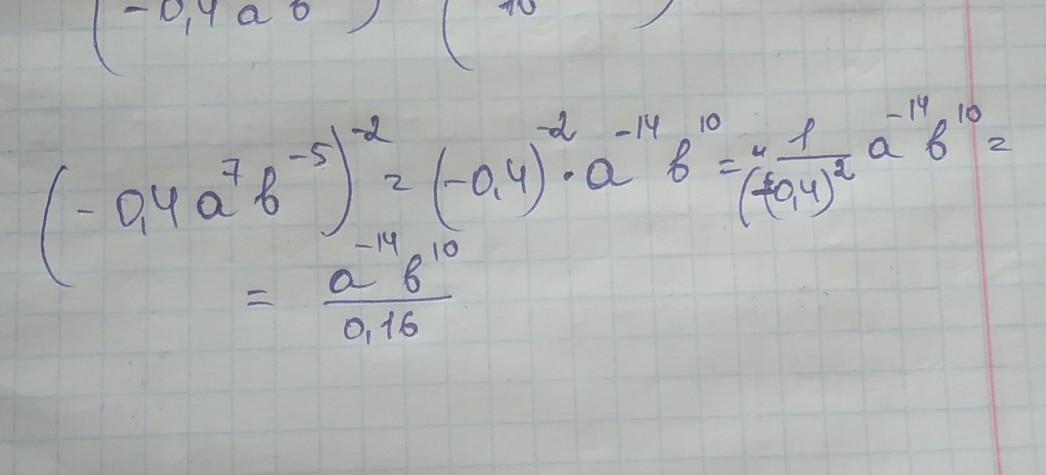 (-0,4 a b ) (10 )
(-0,4 a⁷ b⁻⁵)⁻² = (-0,4)⁻² · a⁻¹⁴ b¹⁰ = 1/(-0,4)² a⁻¹⁴ b¹⁰ =
= a⁻¹⁴ b¹⁰/0,16